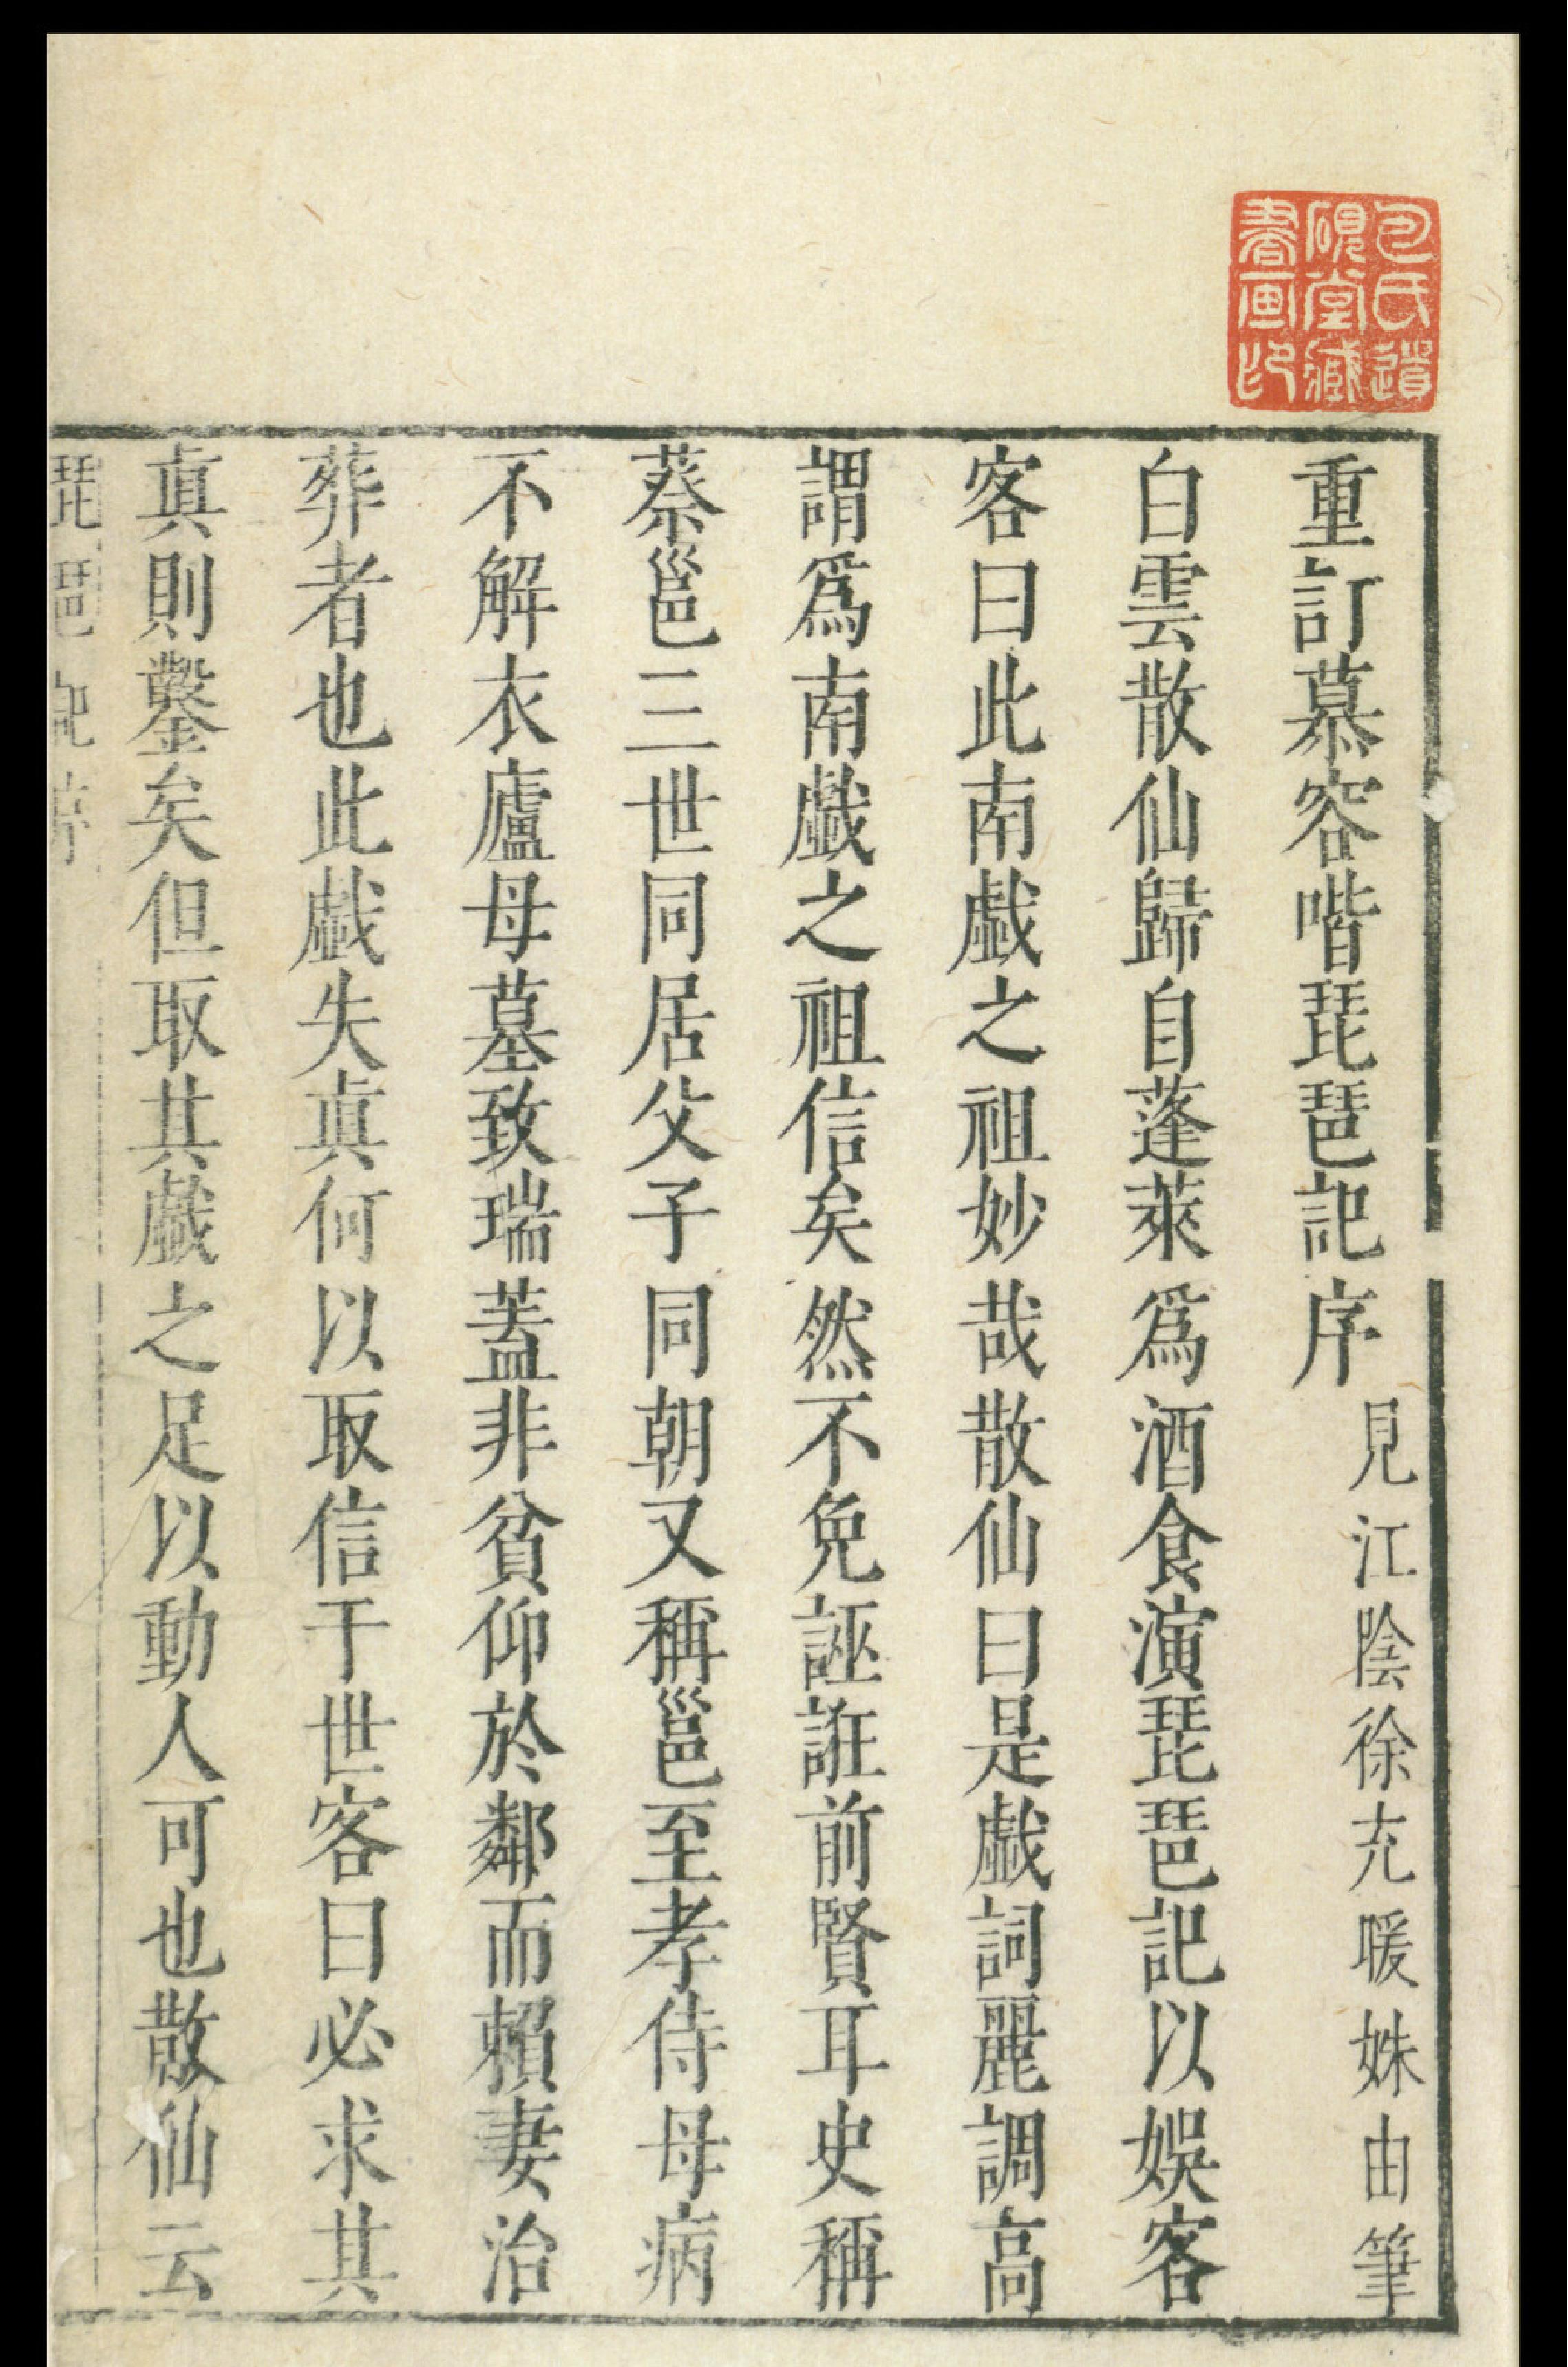 包氏遺
硯堂藏
書画印
重訂慕容喈琵琶記序
見江陰徐充暖姝由筆
白雲散仙歸自蓬萊爲酒食演琵琶記以娛客
客曰此南戯之祖妙哉散仙曰是戯詞麗調高
謂爲南戯之祖信矣然不免誣誑前賢耳史稱
蔡邕三世同居父子同朝又稱邕至孝侍母病
不解衣廬母墓致瑞蓋非貧仰於鄰而賴妻治
葬者也此戯失真何以取信于世客曰必求其
真則鑿矣但取其戯之足以動人可也散仙云
琵琶記序